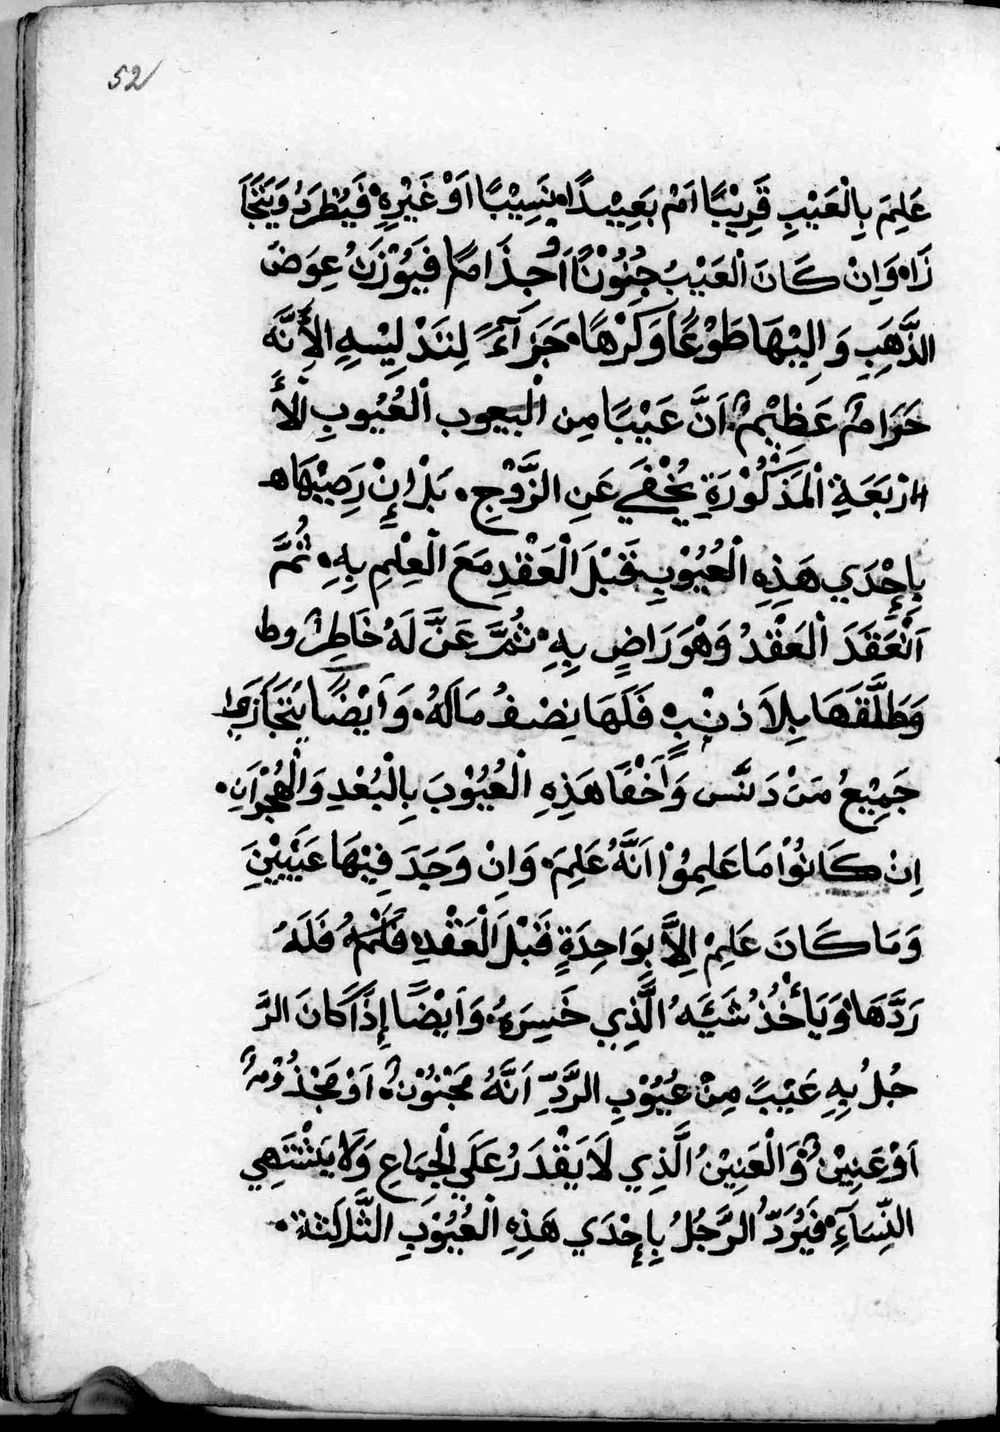 52
عَلِمَ بِالْعَيْبِ قَرِيْبًا اَمْ بَعِيْدًا نَسِيْبًا اَوْ غَيْرِهِ فَيُطْرَدُ وَيَتَجَا
زَاهُ وَاِنْ كَانَ الْعَيْبُ جُنُوْنًا اَوْ جُذَامًا فَيُوْزَنُ عِوَضَ
الذَّهَبِ وَاِلَيْهَا طَوْعًا وَكَرْهًا جَزَآءً لِتَدْلِيْسِهِ لِاَنَّهُ
حَرَامٌ عَظِيْمٌ اَنَّ عَيْبًا مِن الْبيعوب الْعُيُوبِ الْأَ
ارْبَعَةِ الْمَذْكُوْرَةِ يُخْفَي عَنِ الزَّوْجِ بَلْ اِنْ رَضِيَهَا
بِاِحْدَي هَذِهِ الْعُيُوْبِ قَبْلَ الْعَقْدِ مَعَ الْعِلْمِ بِهِ ثُمَّ
اَنْعَقَدَ الْعَقْدُ وَهْوَ رَاضٍ بِهِ ثُمَّ عَنَّ لَهُ خَاطِرٌ وط
وَطَلَّقَهَا بِلَا ذَنْبٍ فَلَهَا نِصْفُ مَالَهُ وَاَيْضًا يَتَجَازَا
جَمِيْعُ مَنْ دَلَّسَ وَاَخْفَا هَذِهِ الْعُيُوْبَ بِالْبُعْدِ وَالْهُجْرَانِ
اِنْ كَانُوْا مَا عَلِمُوْا اَنَّهُ عَلِمَ وَاِنْ وَجَدَ فِيْهَا عَيْبَيْنِ
وَمَا كَانَ عَلِمْ اِلاَّ بِوَاحِدَةٍ قَبْلَ الْعَقْدِ فَلَهُ
رَدَّهَا وَيَأْخُذُ شَيَّهُ الَّذِي خَسِرَهُ وَاَيْضًا إِذَا كَانَ الرَّ
جُلُ بِهِ عَيْبٌ مِنْ عُيُوْبِ الرَّدِّ اَنَّهُ مَجْنُوْنٌ اَوْ مَجْذُوْمٌ
اَوْ عَنِيْنٌ وَالْعَنِيْنُ الَّذِي لَا يَقْدَرُ عَلَي الْجِمَاعِ وَلَا يَشْتَهِي
النِّسَآءِ فَيُرَدُّ الرَّجُلُ بِاِحْدَي هَذِهِ الْعُيُوْبِ الثَّلَثَة